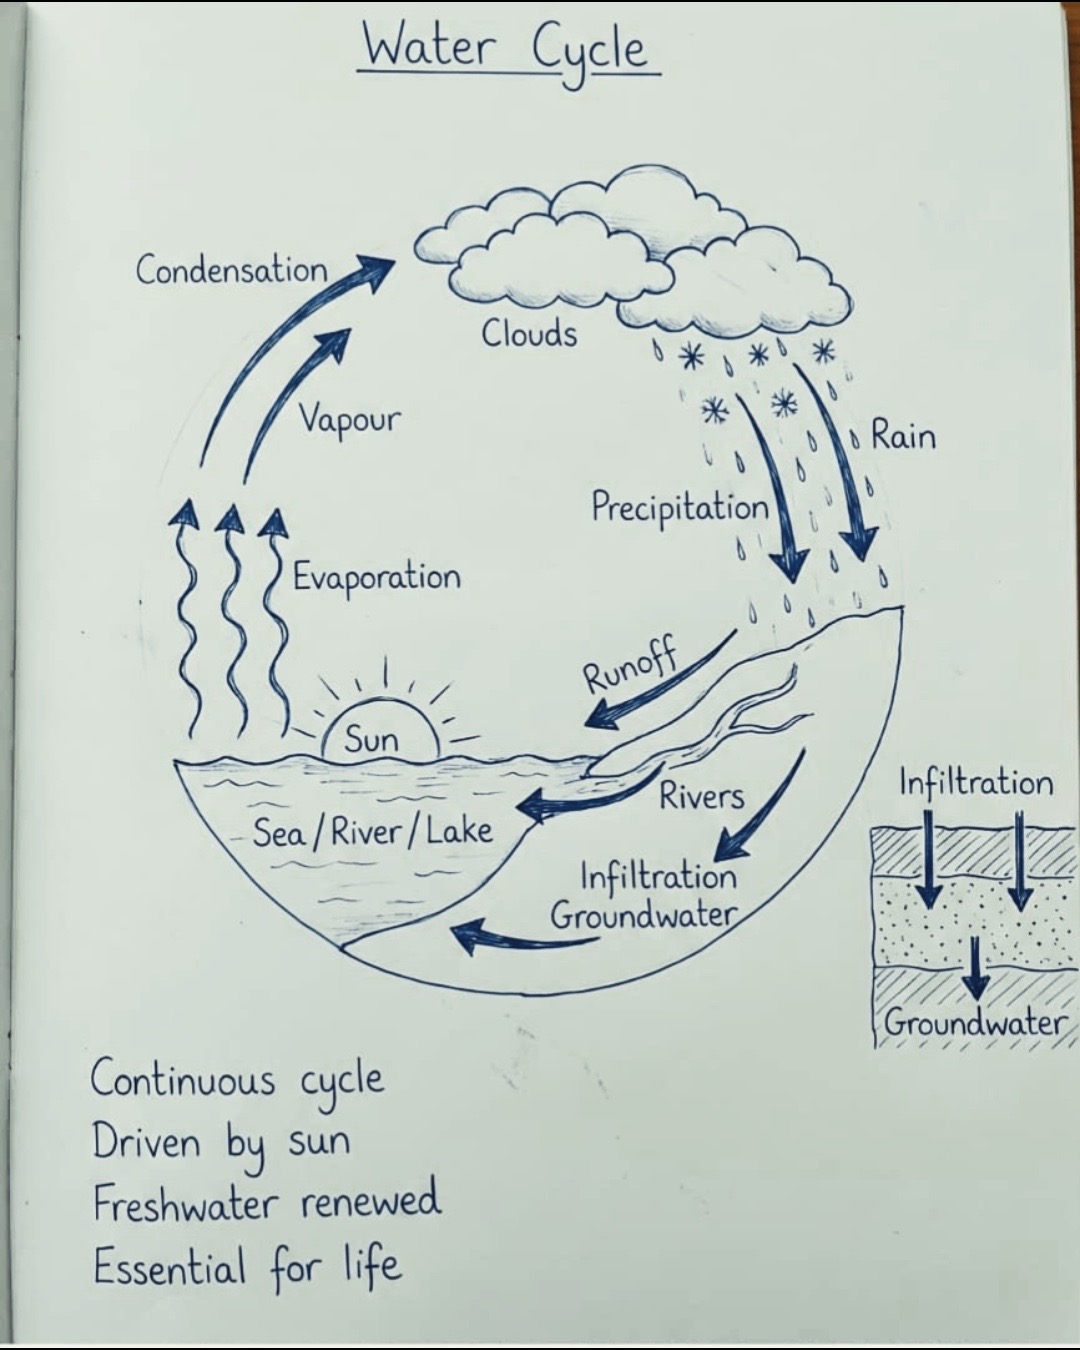 Water Cycle
Condensation
Clouds
Vapour
Rain
Precipitation
Evaporation
Runoff
Sun
Rivers
Infiltration
Sea/River/Lake
Infiltration
Groundwater
Groundwater
Continuous cycle
Driven by sun
Freshwater renewed
Essential for life